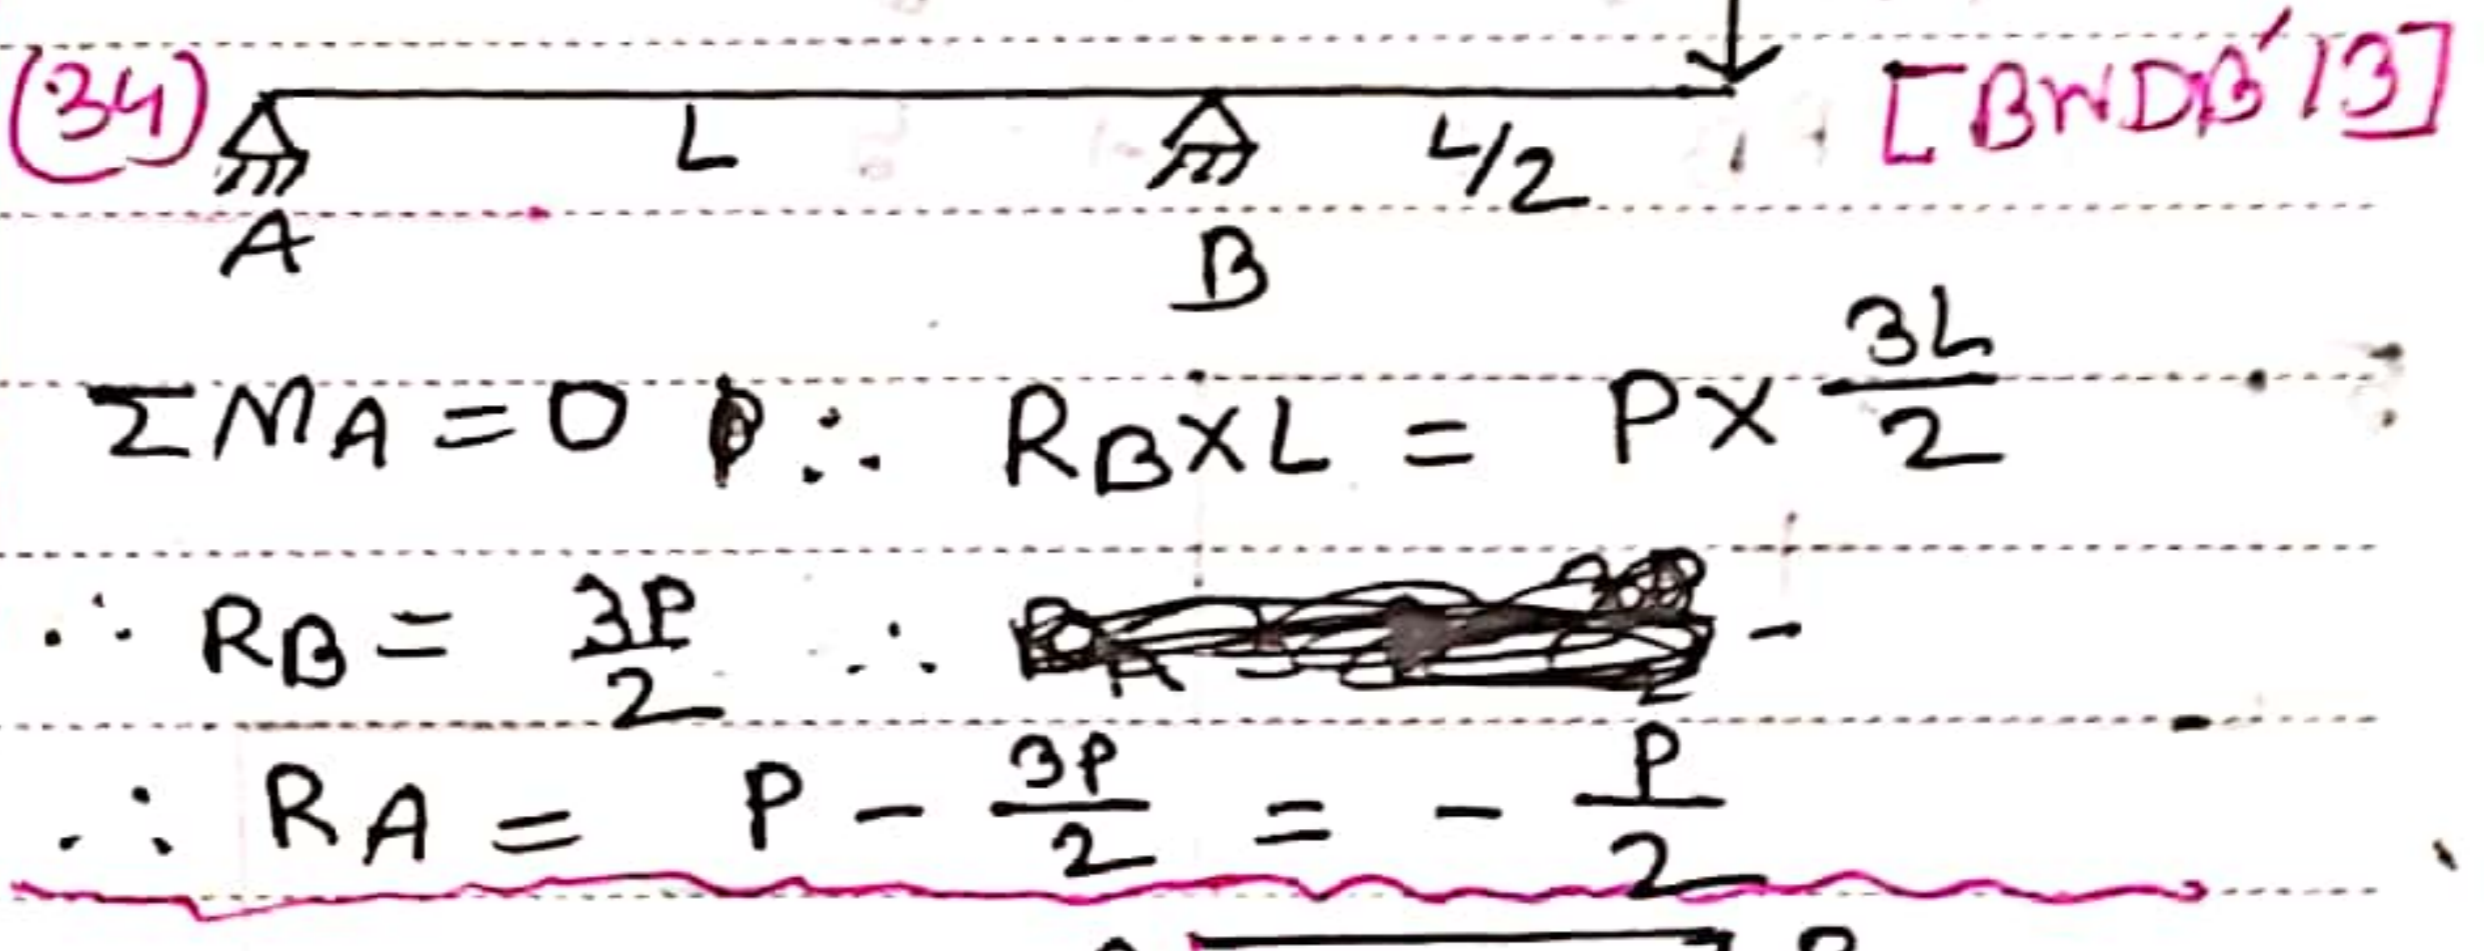 (34) L L/2 [BWDB'13]
A B
ΣMA = 0 ∴ RB×L = P× 3L/2
∴ RB = 3P/2 ∴ -
∴ RA = P - 3P/2 = - P/2